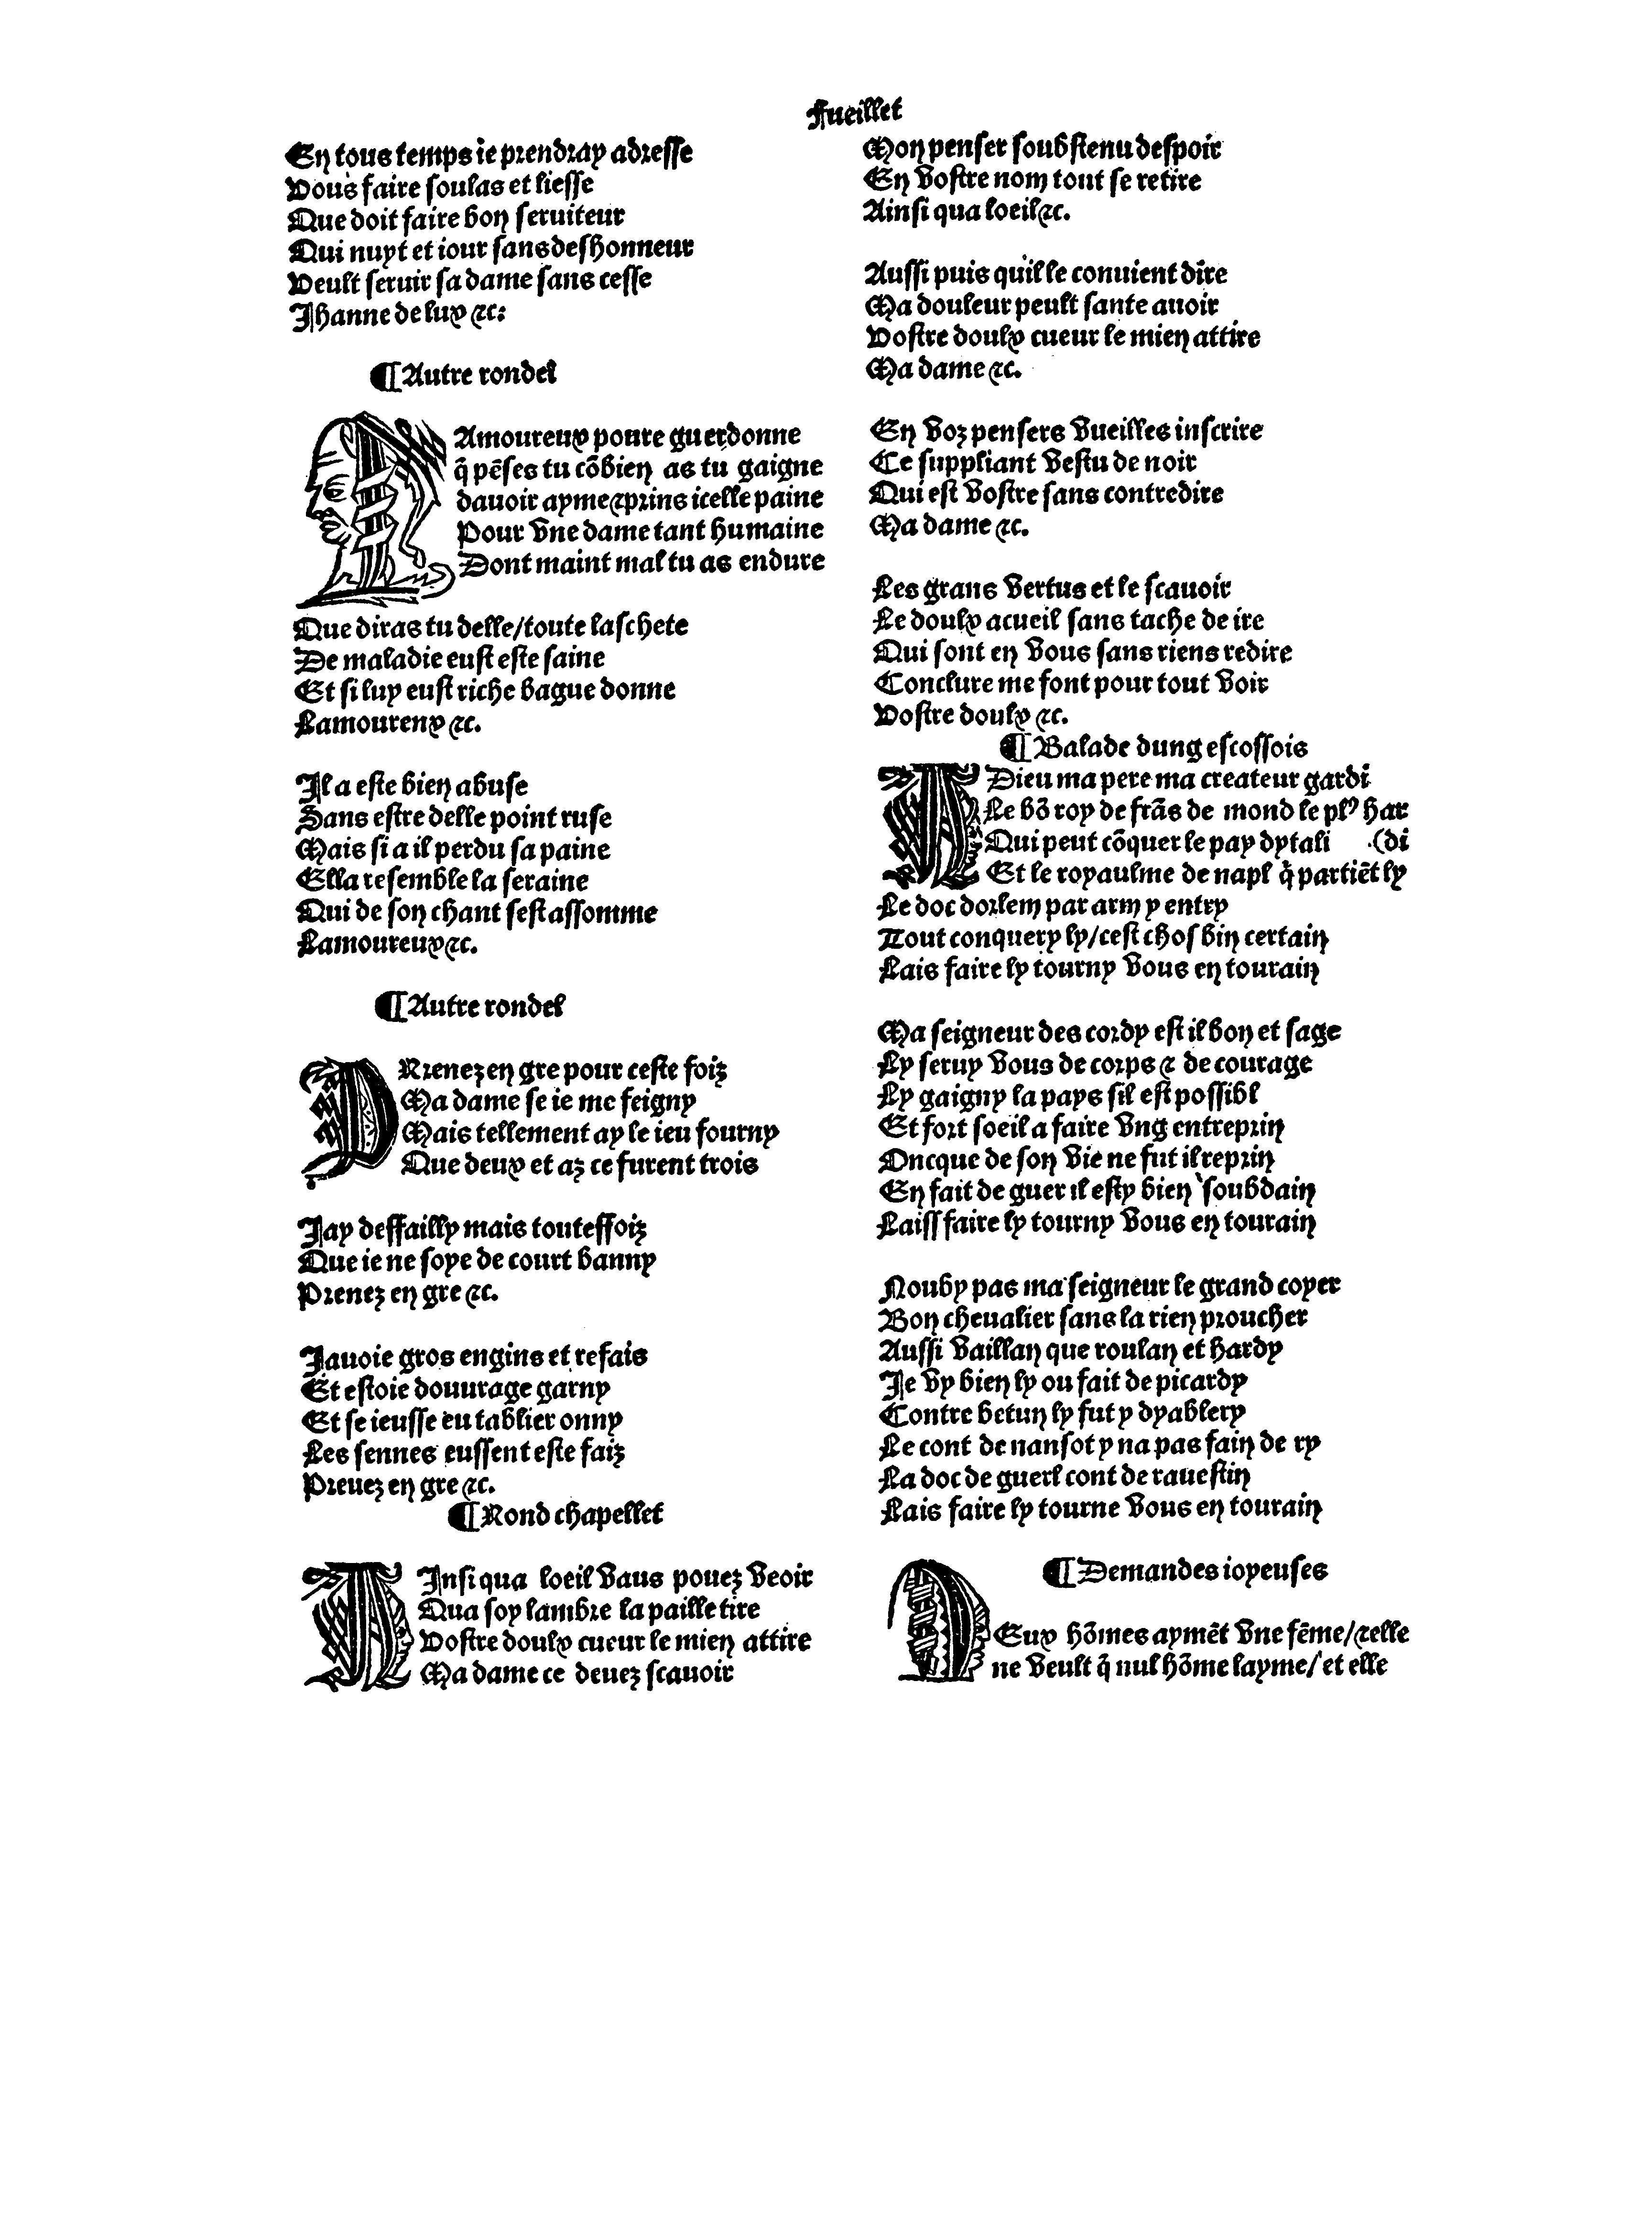 Fueillet
En tous temps ie prendray adresse
Vous faire soulas et liesse
Que doit faire bon seruiteur
Qui nuyt et iour sans deshonneur
Veult seruir sa dame sans cesse
Jhanne de lux &c:
¶Autre rondel
LAmoureux poure guerdonne
q̄ pēses tu cōbien as tu gaigne
dauoir ayme &prins icelle paine
Pour vne dame tant humaine
Dont maint mal tu as endure
Que diras tu delle/toute laschete
De maladie eust este saine
Et si luy eust riche bague donne
Lamourenx &c.
Il a este bien abuse
Sans estre delle point ruse
Mais si a il perdu sa paine
Ella resemble la seraine
Qui de son chant sest assomme
Lamoureux &c.
¶Autre rondel
PRenez en gre pour ceste foiz
Ma dame se ie me feigny
Mais tellement ay le ieu fourny
Que deux et az ce furent trois
Jay deffailly mais touteffoiz
Que ie ne soye de court banny
Prenez en gre &c.
Jauoie gros engins et refais
Et estoie douurage garny
Et se ieusse eu tablier onny
Les sennes eussent este faiz
Preuez en gre &c.
¶Rond chapellet
AInsi qua loeil vaus pouez veoir
Qua soy lambre la paille tire
Vostre doulx cueur le mien attire
Ma dame ce deuez scauoir
Mon penser soubstenu despoir
En vostre nom tout se retire
Ainsi qua loeil &c.
Aussi puis quil le conuient dire
Ma douleur peult sante auoir
Vostre doulx cueur le mien attire
Ma dame &c.
En voz pensers vueilles inscrire
Ce suppliant vestu de noir
Qui est vostre sans contredire
Ma dame &c.
Les grans vertus et le scauoir
Le doulx acueil sans tache de ire
Qui sont en vous sans riens redire
Conclure me font pour tout voir
Vostre doulx &c.
¶Balade dung escossois
A Dieu ma pere ma createur gardi
Le bō roy de frās de mond le plꝰ har
Qui peut cōquer le pay dytali (di
Et le royaulme de napl q̄ partiēt ly
Le doc dorlem par arm y entry
Tout conquery ly/cest chos bin certain
Lais faire ly tourny vous en tourain
Ma seigneur des cordy est il bon et sage
Ly seruy vous de corps & de courage
Ly gaigny la pays sil est possibl
Et fort soeil a faire vng entreprin
Oncque de son vie ne fut il reprin
En fait de guer il esty bien soubdain
Laiss faire ly tourny vous en tourain
Nouby pas ma seigneur le grand coyer
Bon cheualier sans la rien proucher
Aussi vaillan que roulan et hardy
Je vy bien ly ou fait de picardy
Contre betun ly fut y dyablery
Le cont de nansot y na pas fain de ry
La doc de guerl cont de rauestin
Lais faire ly tourne vous en tourain
¶Demandes ioyeuses
DEux hōmes aymēt vne fēme/&elle
ne veult q̄ nul hōme layme/et elle